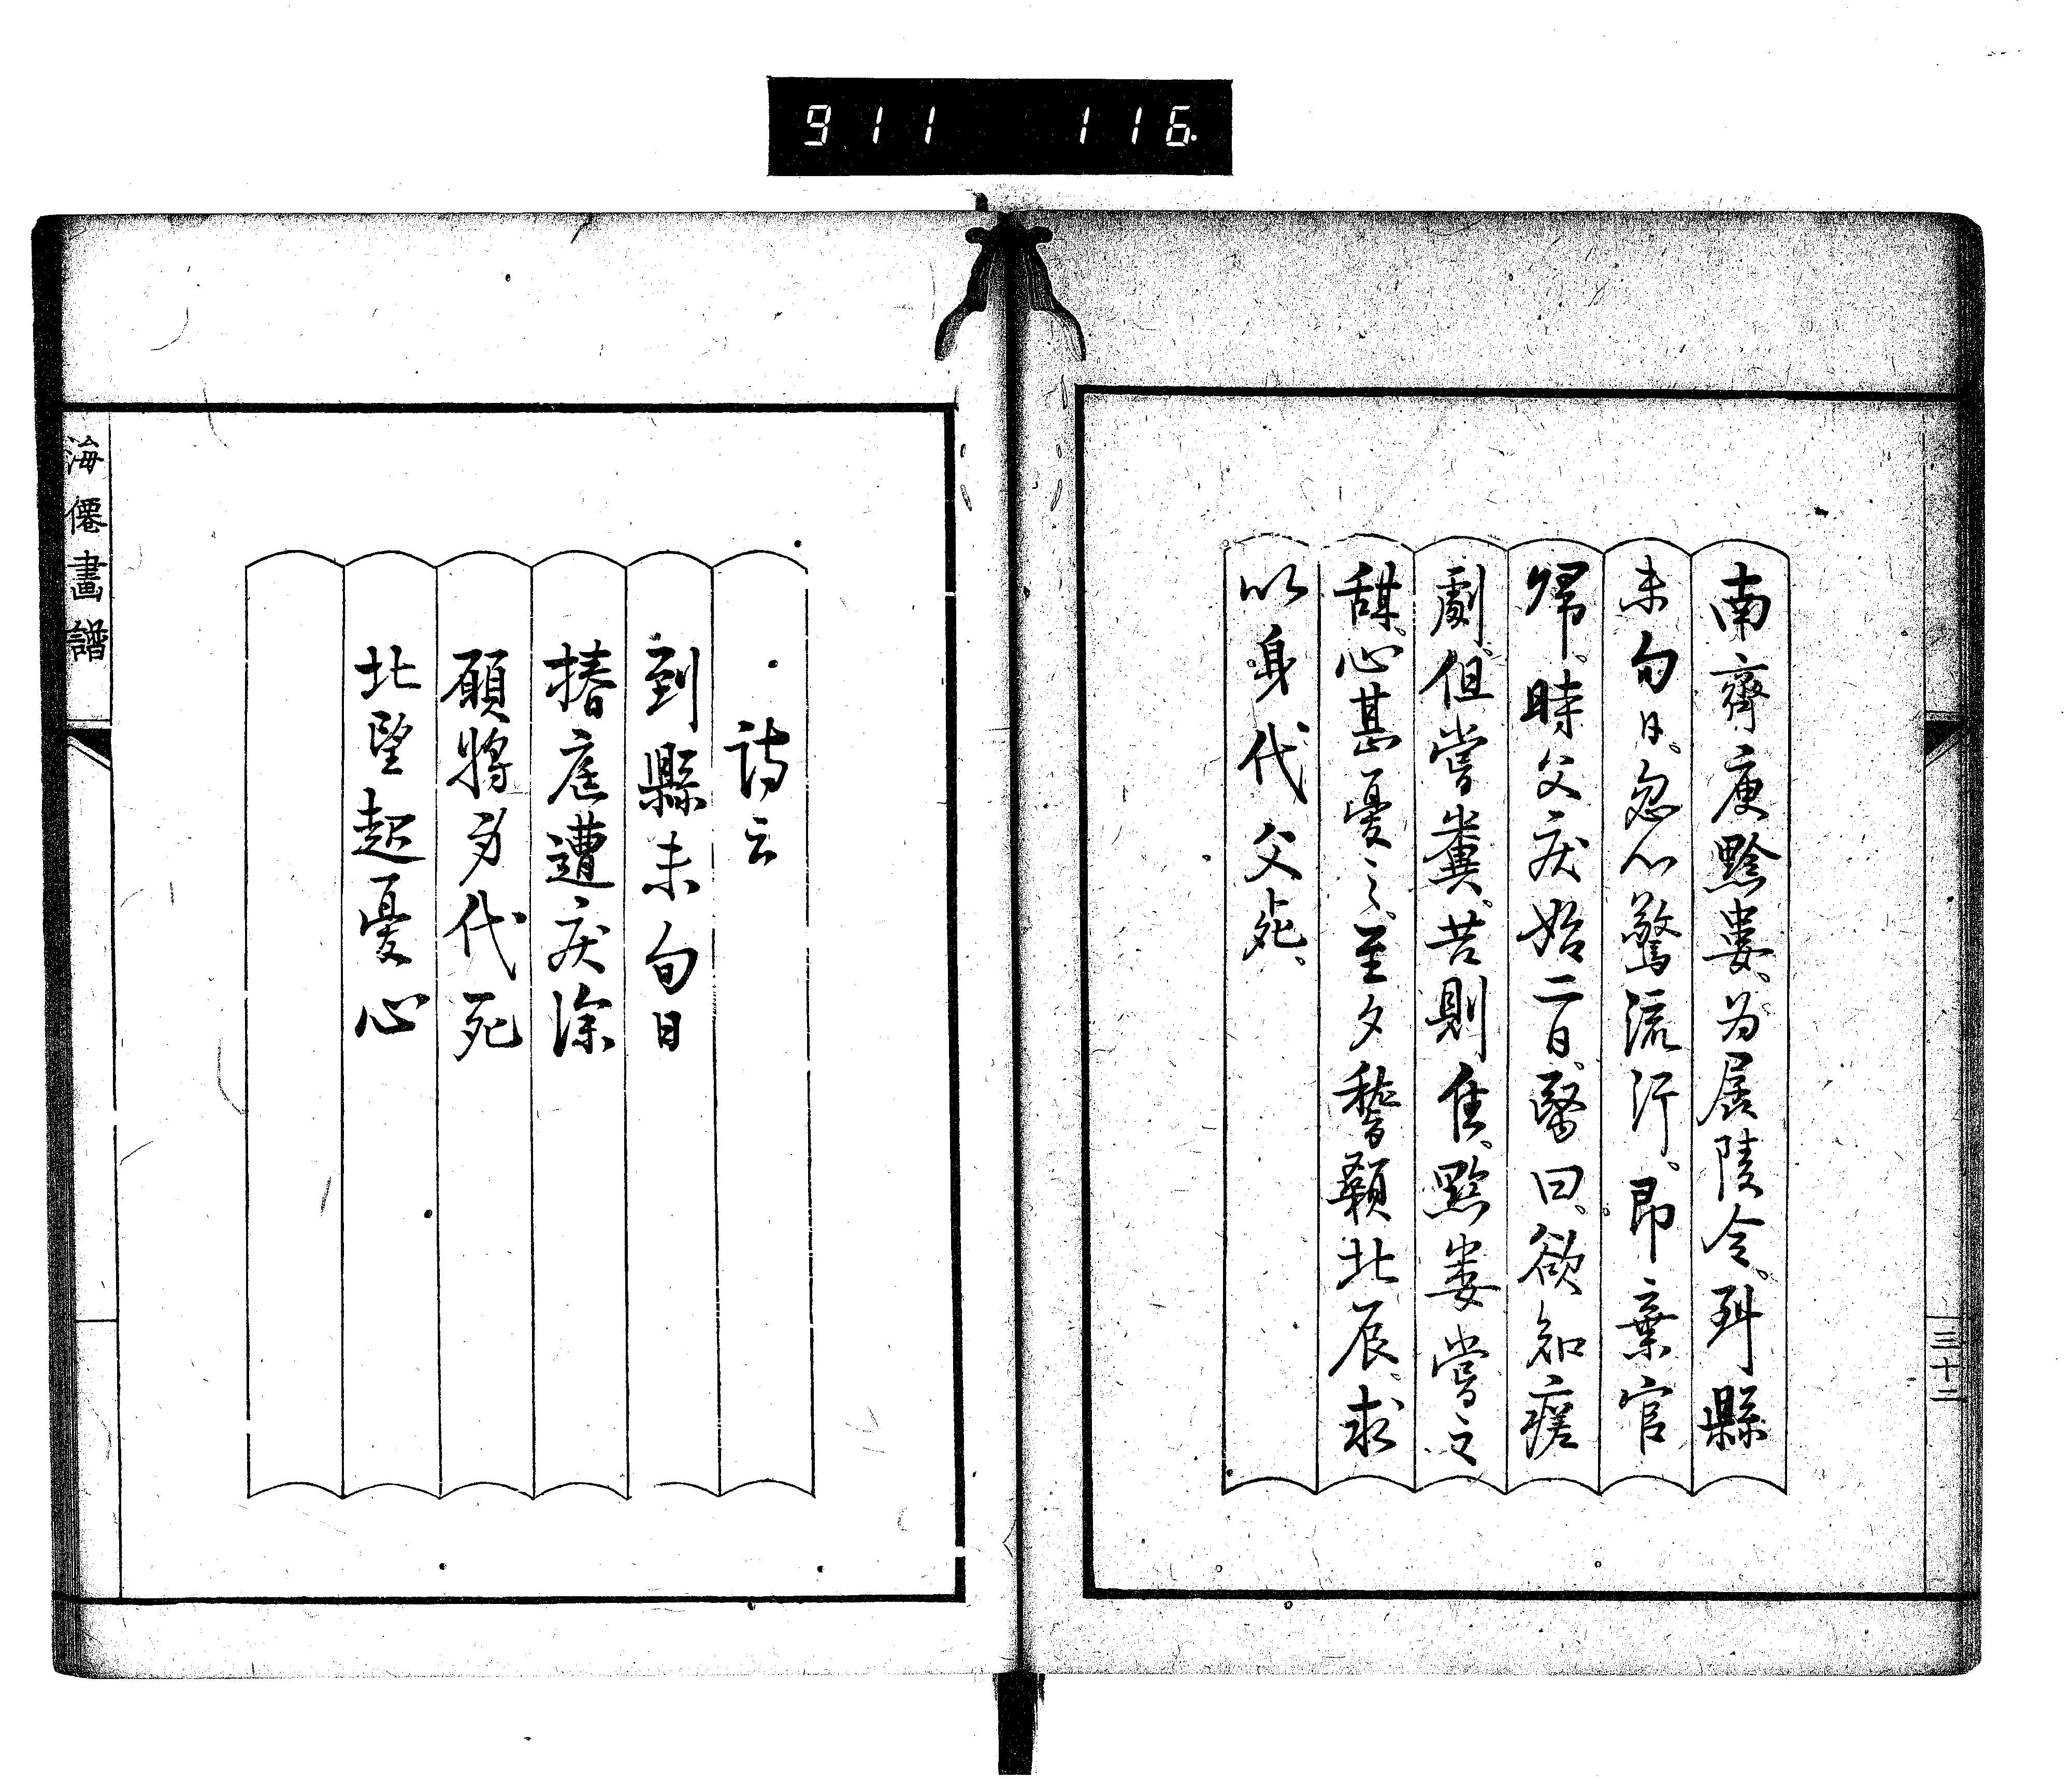 911 116
南齊庾黔婁。为孱陵令。到縣
未旬日。忽心驚流汗。即棄官
帰。時父疾始二日。醫曰。欲知瘥
劇。但嘗糞。苦則佳。黔婁嘗之
甜。心甚憂之。至夕稽顙北辰。求
以身代父死。
三十二
詩云
到縣未旬日
椿庭遭疾深
願將身代死
北望起憂心
海僊畫譜